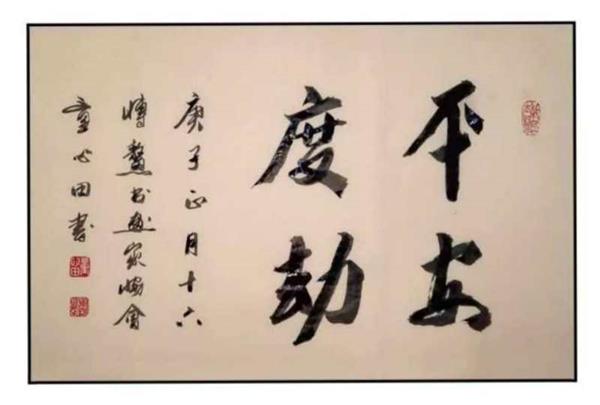 平安
度劫
庚子正月十六
博鰲书画家協會
童心田書